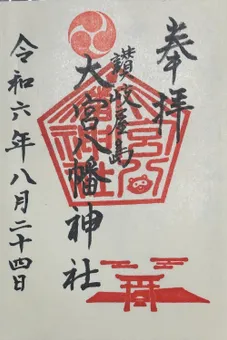 奉拝
讃岐屋島
大宮八幡神社
令和六年八月二十四日